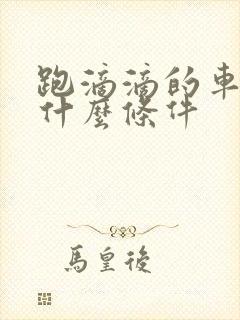 跑滴滴的車
什麼條件
馬皇後